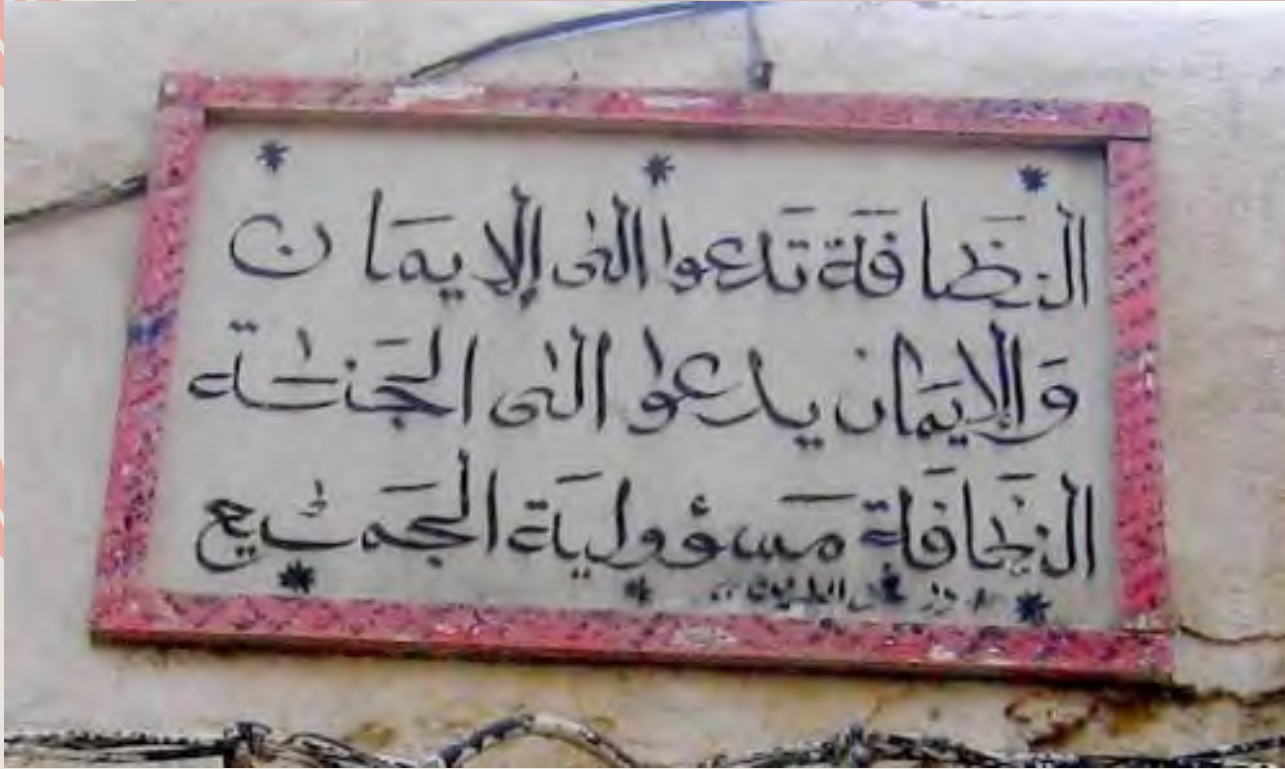 النَظافَة تَدعوا الى الإيمَان
وَالإيمَان يدعوا الى الجَنة
النَظافَة مَسؤوليَة الجَميع